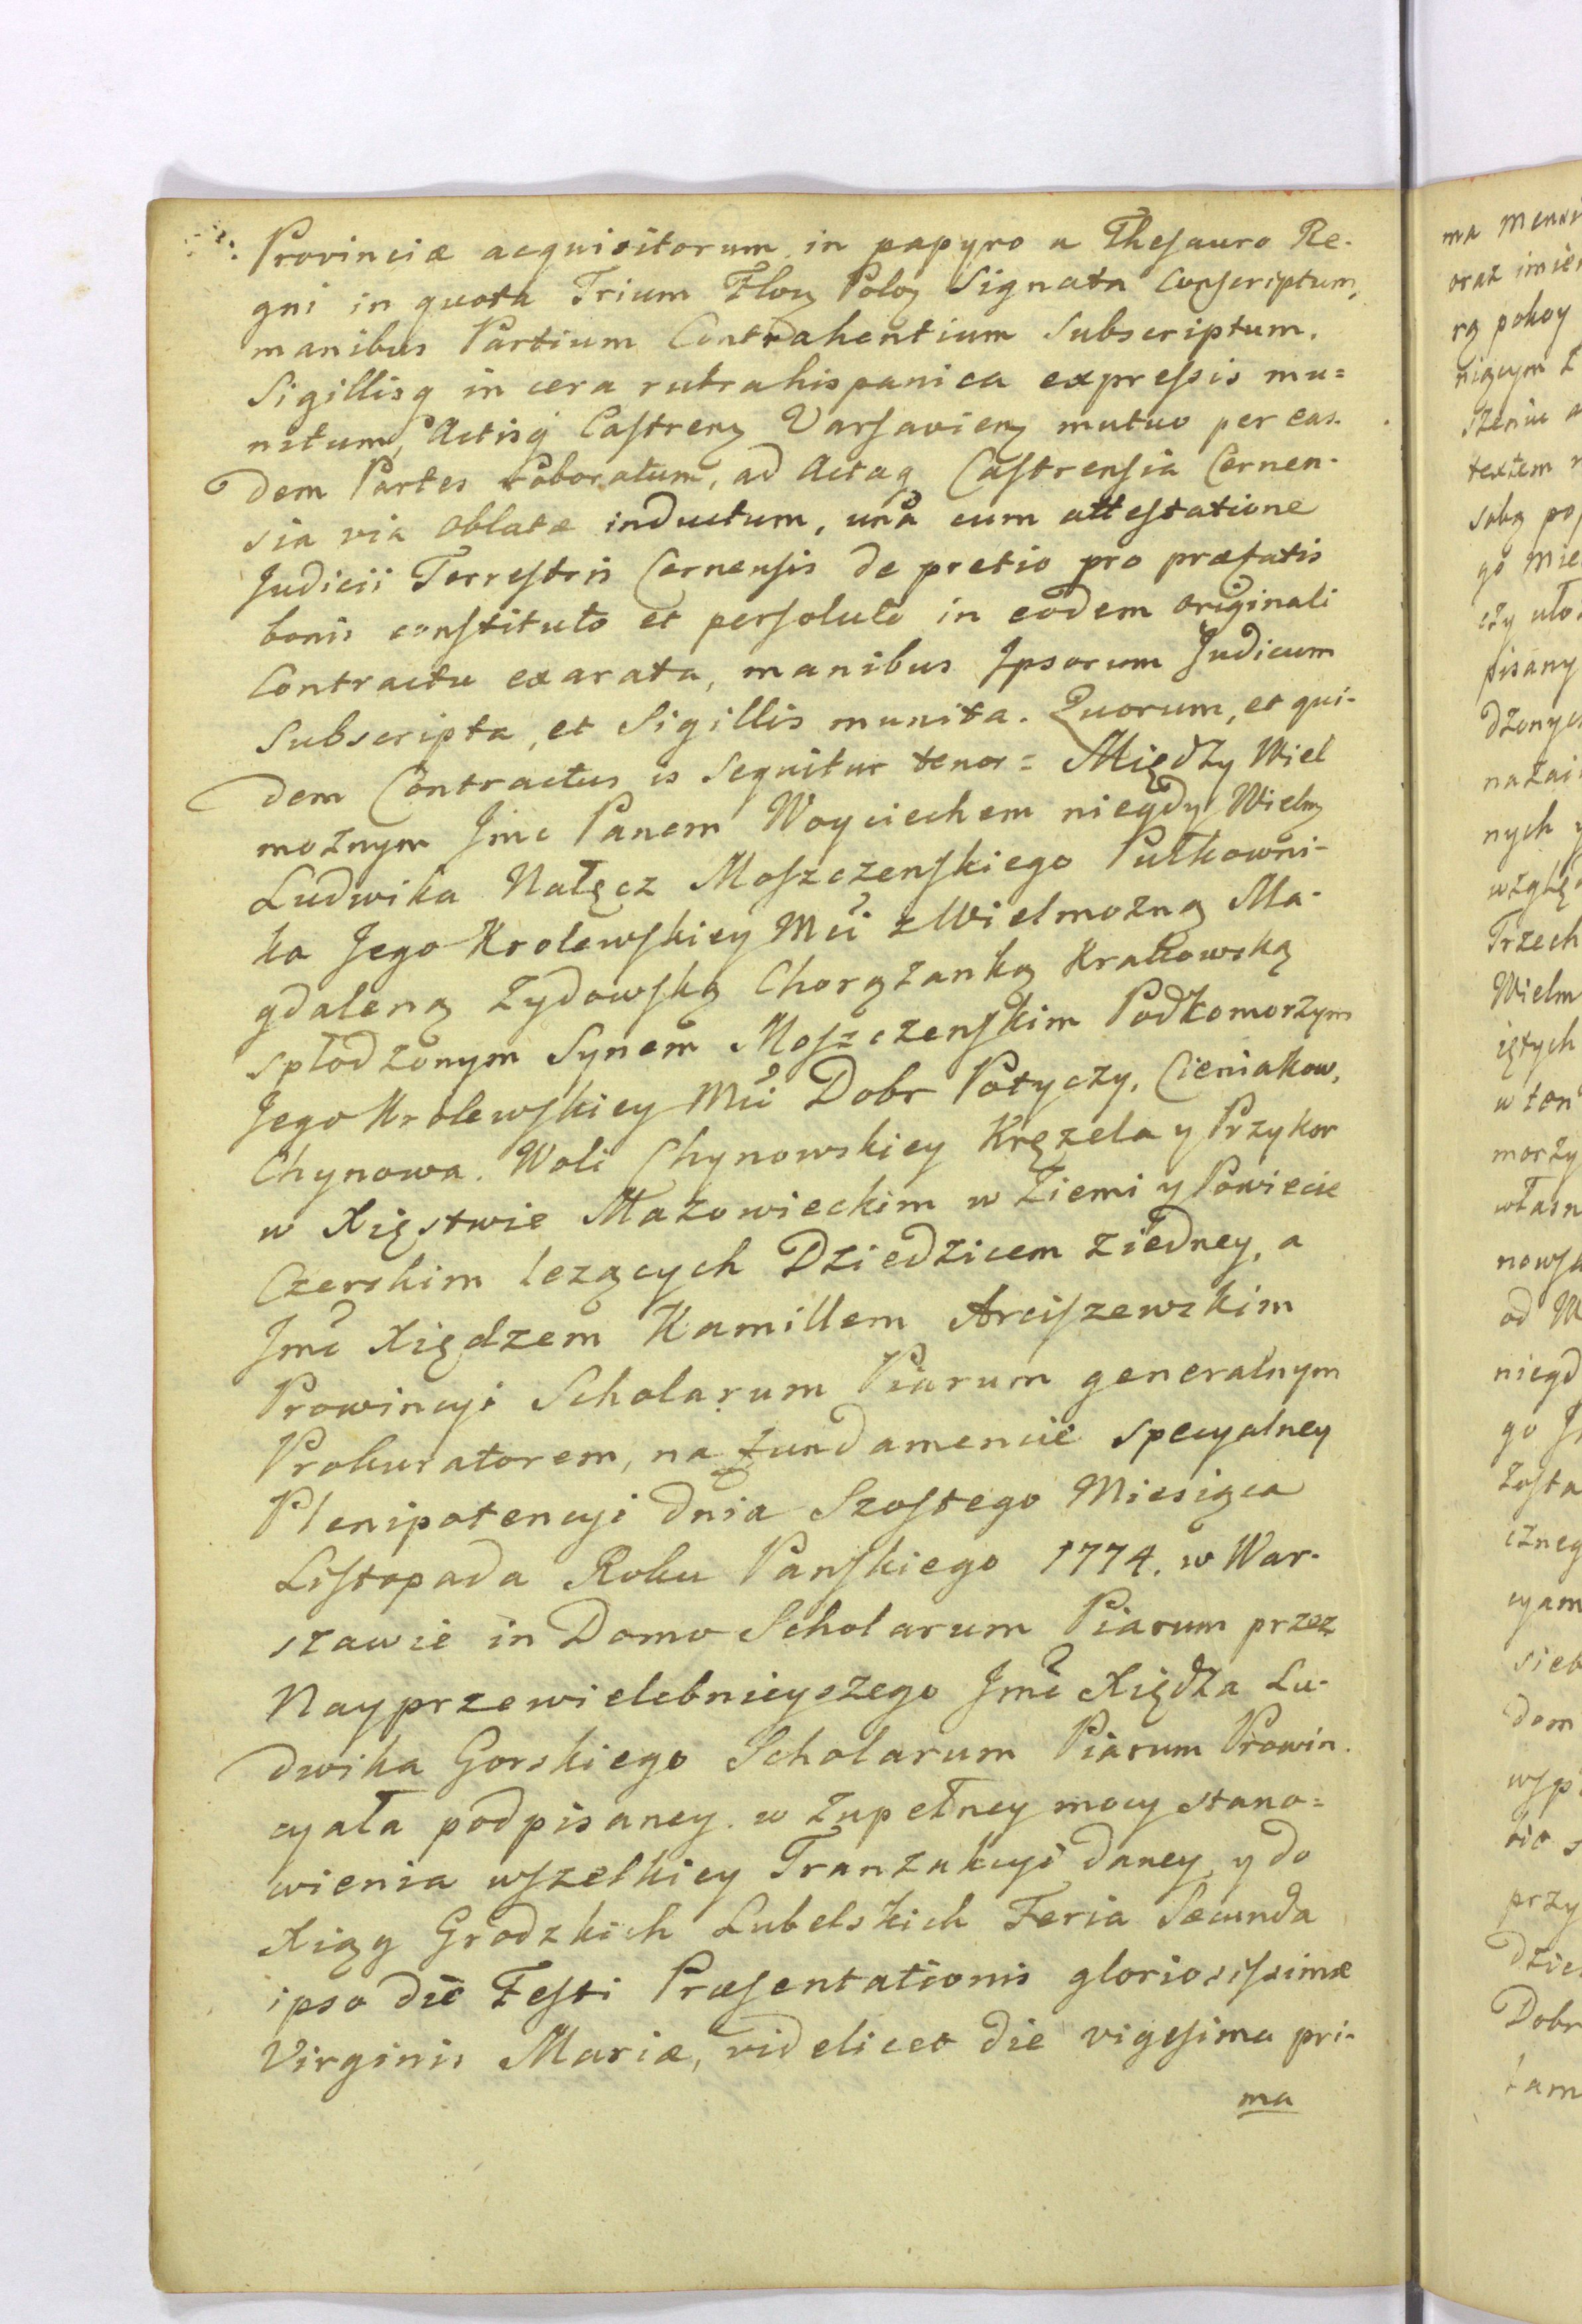 Provinciæ acquisitorum in papyro a Thesauro Re-
gni in quota Trium Flor Polo Signata Conscriptum,
manibus Partium Contrahentium Subscriptum,
Sigillisq in cera rubra hispanica expressis mu=
nitum, Actisq Castren Varsavien mutuo per eas-
dem Partes roboratum, ad Actaq Castrensia Cernen-
sia via oblatæ inductum, una cum attestatione
Judicii Terrestris Cernensis de pretio pro præfatis
bonis constituto et persoluto in eodem originali
Contractu exarata, manibus Ipsorum Judicum
Subscripta, et Sigillis munita. Quorum, et qui-
dem Contractus is sequitur tenor = Między Wiel
możnym Jmc Panem Woyciechem niegdy Wielm
Ludwika Nałęcz Moszczenskiego Pułkowni-
ka Jego Krolewskiey Mci z Wielmożną Ma-
gdaleną Zydowską Chorążanką Krakowską
spłodzonym Synem Moszczenskim Podkomorzym
Jego Krolewskiey Mci Dobr Potyczy, Cieniakow,
Chynowa. Woli Chynowskiey Kręzela y Przykor
w Xięstwie Mazowieckim w Ziemi y Powiecie
Czerskim leżących Dziedzicem z iedney, a
Jmc Xiędzem Kamillem Arciszewskim
Prowincyi Scholarum Piarum generalnym
Prokuratorem, na fundamencie specyalney
Plenipotencyi dnia Szostego Miesiąca
Listopada Roku Panskiego 1774. w War-
szawie in Domo Scholarum Piarum przez
Nayprzewielebnieyszego Jmc Xiędza Lu-
dwika Gorskiego Scholarum Piarum Prowin-
cyała podpisaney. w zupełney mocy stano=
wienia wszelkiey Tranzakcyi daney, y do
Xiąg Grodzkich Lubelskich Feria Secunda
ipso die Festi Præsentationis gloriosissimæ
Virginis Mariæ, videlicet die vigesima pri-
ma
ma
oraz
rą pokoy
nigcym
textem
sobą
pisany
nych
Trzech
Wielm
iętych
morzy
własn
od W
niegd
go
czneg
cyam
sieb
dom
przy
Dobr
tam